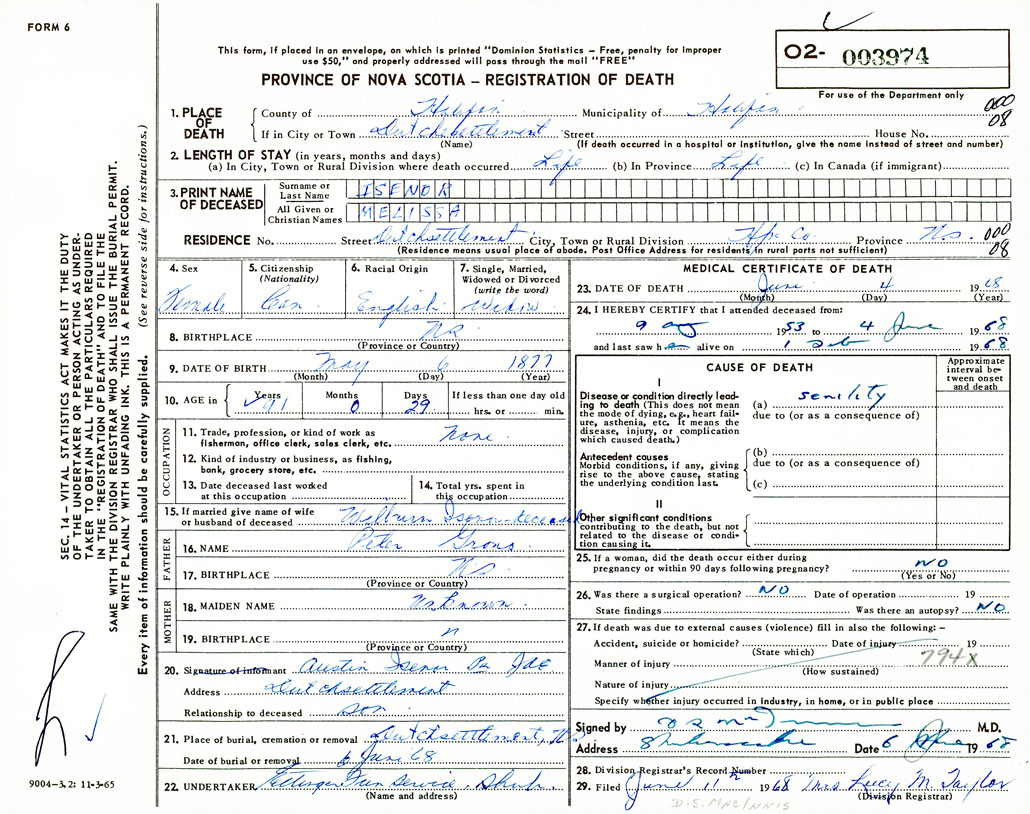 FORM 6
This form, if placed in an envelope, on which is printed "Dominion Statistics – Free, penalty for improper
use $50," and properly addressed will pass through the mail "FREE"
PROVINCE OF NOVA SCOTIA – REGISTRATION OF DEATH
O2- 003974
For use of the Department only
000
08
1. PLACE OF DEATH
County of Halifax Municipality of Halifax
If in City or Town Dutchsettlement Street House No.
(Name) (If death occurred in a hospital or institution, give the name instead of street and number)
2. LENGTH OF STAY (in years, months and days)
(a) In City, Town or Rural Division where death occurred Life (b) In Province Life (c) In Canada (if immigrant)
3. PRINT NAME OF DECEASED
Surname or Last Name ISENOR
All Given or Christian Names MELISSA
RESIDENCE No. Street Dutchsettlement City, Town or Rural Division Hfx Co. Province N.S. 000
(Residence means usual place of abode. Post Office Address for residents in rural parts not sufficient) 08
4. Sex Female
5. Citizenship (Nationality) Can
6. Racial Origin English
7. Single, Married, Widowed or Divorced (write the word) Widow
8. BIRTHPLACE NS
(Province or Country)
9. DATE OF BIRTH May 6 1877
(Month) (Day) (Year)
10. AGE in Years 91 Months 0 Days 29 If less than one day old hrs. or min.
OCCUPATION
11. Trade, profession, or kind of work as
fisherman, office clerk, sales clerk, etc. None
12. Kind of industry or business, as fishing,
bank, grocery store, etc.
13. Date deceased last worked
at this occupation
14. Total yrs. spent in
this occupation
15. If married give name of wife
or husband of deceased Wilburn Isenor-deceased
FATHER
16. NAME Peter Grono
17. BIRTHPLACE NS
(Province or Country)
MOTHER
18. MAIDEN NAME Unknown
19. BIRTHPLACE "
(Province or Country)
20. Signature of informant Austin Isenor Per
Address Dutchsettlement
Relationship to deceased son
21. Place of burial, cremation or removal Dutchsettlement, N.S.
Date of burial or removal 6 June 68
22. UNDERTAKER Ettinger Fun Service, Shub.
(Name and address)
MEDICAL CERTIFICATE OF DEATH
23. DATE OF DEATH June 4 1968
(Month) (Day) (Year)
24. I HEREBY CERTIFY that I attended deceased from:
9 Aug 1953 to 4 June 1968
and last saw h alive on 1 1968
CAUSE OF DEATH
Approximate interval between onset and death
I
Disease or condition directly leading to death (This does not mean the mode of dying, e.g., heart failure, asthenia, etc. It means the disease, injury, or complication which caused death.)
(a) senility
due to (or as a consequence of)
Antecedent causes
Morbid conditions, if any, giving rise to the above cause, stating the underlying condition last.
(b)
due to (or as a consequence of)
(c)
II
Other significant conditions
contributing to the death, but not related to the disease or condition causing it.
25. If a woman, did the death occur either during
pregnancy or within 90 days following pregnancy? NO
(Yes or No)
26. Was there a surgical operation? NO Date of operation 19
State findings Was there an autopsy? NO
27. If death was due to external causes (violence) fill in also the following: –
Accident, suicide or homicide? Date of injury 19
(State which) 794X
Manner of injury
(How sustained)
Nature of injury
Specify whether injury occurred in Industry, in home, or in public place
Signed by M.D.
Address Shubenacadie Date 6 June 1968
28. Division Registrar's Record Number
29. Filed June 11 1968 Mrs Lucy M. Taylor
(Division Registrar)
SEC. 14 – VITAL STATISTICS ACT MAKES IT THE DUTY
OF THE UNDERTAKER OR PERSON ACTING AS UNDER-
TAKER TO OBTAIN ALL THE PARTICULARS REQUIRED
IN THE "REGISTRATION OF DEATH" AND TO FILE THE
SAME WITH THE DIVISION REGISTRAR WHO SHALL ISSUE THE BURIAL PERMIT.
WRITE PLAINLY WITH UNFADING INK. THIS IS A PERMANENT RECORD.
Every item of information should be carefully supplied. (See reverse side for instructions.)
9004–3.2: 11-3-65